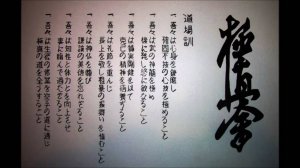 極真会
道場訓
一、吾々は心身を錬磨し
確固不抜の心技を極めること
一、吾々は武の神髄を極め
機に発し感に敏なること
一、吾々は質実剛健を以て
克己の精神を涵養すること
一、吾々は礼節を重んじ
長上を敬し粗暴の振舞いを慎むこと
一、吾々は神仏を尊び
謙譲の美徳を忘れざること
一、吾々は知性と体力とを向上させ
事に臨んで過たざること
一、吾々は生涯の修行を空手の道に通じ
極真の道を全うすること